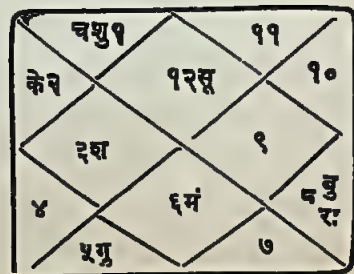 चशु१
११
के२
१२सू
१०
३श
९
४
६मं
८ बु
रा
५गु
७